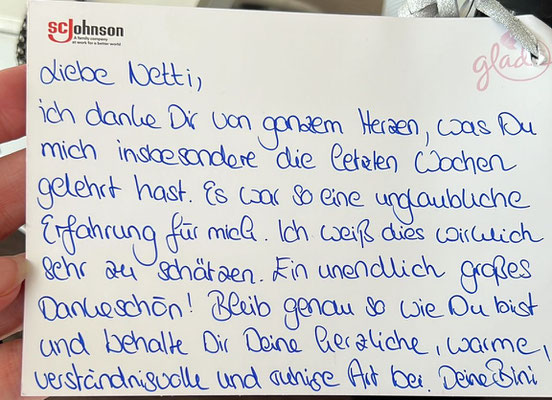 SC Johnson
A family company
at work for a better world
glade
Liebe Netti,
ich danke Dir von ganzem Herzen, was Du
mich insbesondere die letzten Wochen
gelehrt hast. Es war so eine unglaubliche
Erfahrung für mich. Ich weiß dies wirklich
sehr zu schätzen. Ein unendlich großes
Dankeschön! Bleib genau so wie Du bist
und behalte Dir Deine herzliche, warme,
verständnisvolle und ruhige Art bei. Deine Bini